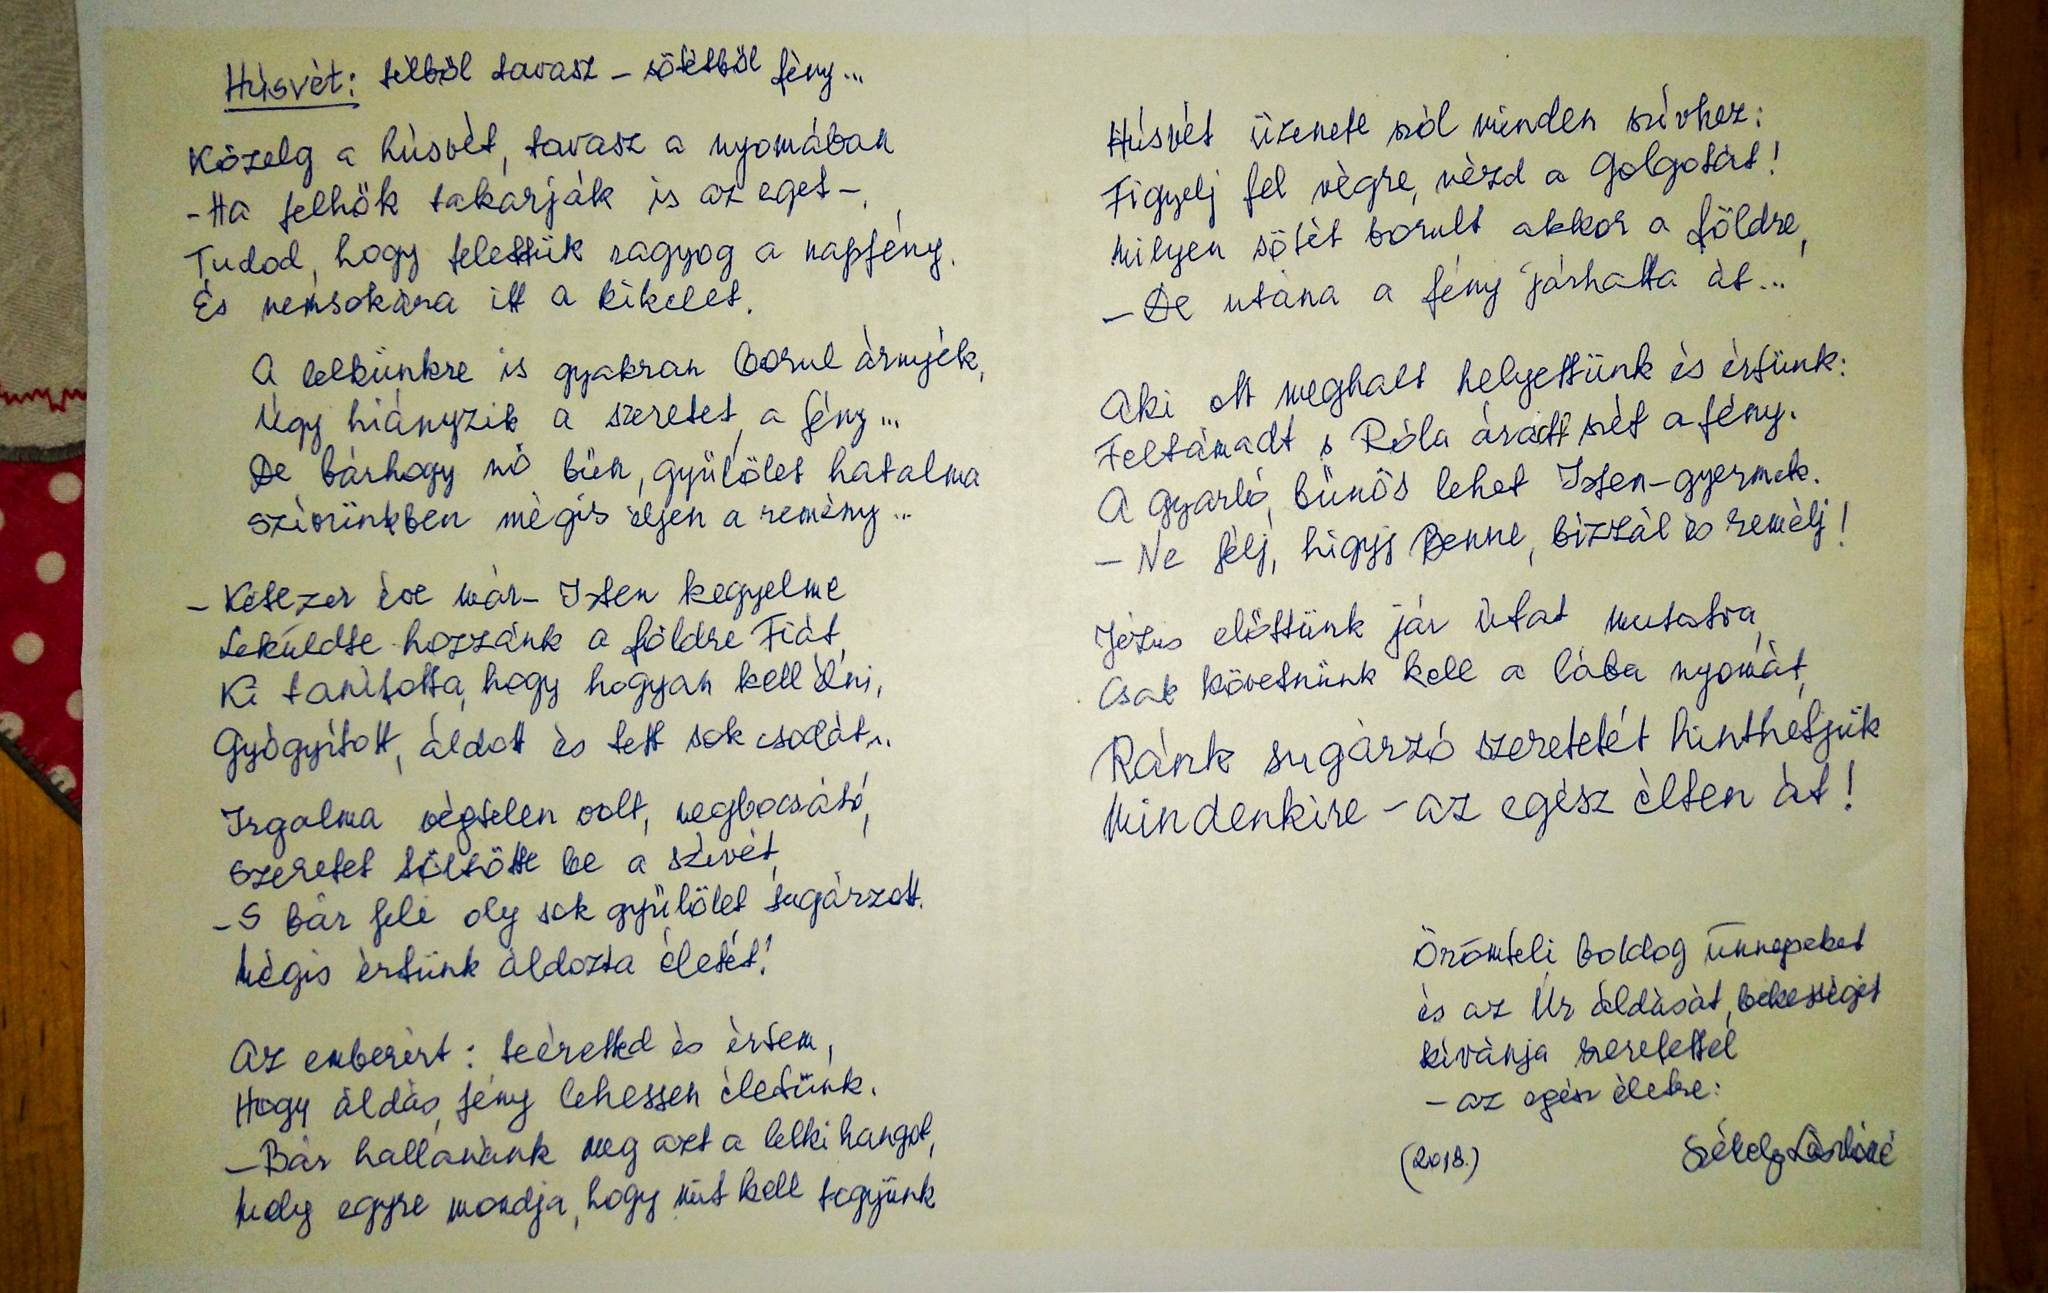 Húsvét: télből tavasz – sötétből fény...
Közelg a húsvét, tavasz a nyomában
- Ha felhők takarják is az eget –,
Tudod, hogy felettük ragyog a napfény.
És nemsokára itt a kikelet.
A lelkünkre is gyakran borul árnyék,
Úgy hiányzik a szeretet, a fény...
De bárhogy nő bűn, gyűlölet hatalma
Szívünkben mégis éljen a remény...
– Kétezer éve már – Isten kegyelme
Leküldte hozzánk a földre Fiát,
Ki tanította, hogy hogyan kell élni,
Gyógyított, áldott és tett sok csodát...
Irgalma végtelen volt, megbocsátó,
Szeretet töltötte be a szívét,
– S bár felé oly sok gyűlölet sugárzott.
Mégis értünk áldozta életét!
Az emberért: teéretted és értem,
Hogy áldás, fény lehessen életünk.
– Bár hallanánk meg azt a lelki hangot,
Mely egyre mondja, hogy mit kell tegyünk
Húsvét üzenete szól minden szívhez:
Figyelj fel végre, nézd a Golgotát!
Milyen sötét borult akkor a földre,
– De utána a fény járhatta át...
Aki ott meghalt helyettünk és értünk:
Feltámadt s Róla áradt szét a fény.
A gyarló, bűnös lehet Isten-gyermek.
– Ne félj, higyj Benne, bízzál és remélj!
Jézus előttünk jár utat mutatva,
Csak követnünk kell a lába nyomát,
Ránk sugárzó szeretetét hinthetjük
Mindenkire – az egész élten át!
Örömteli boldog ünnepeket
és az Úr áldását, békességet
kívánja szeretettel
– az egész életre:
(2018.) Székely Lászlóné